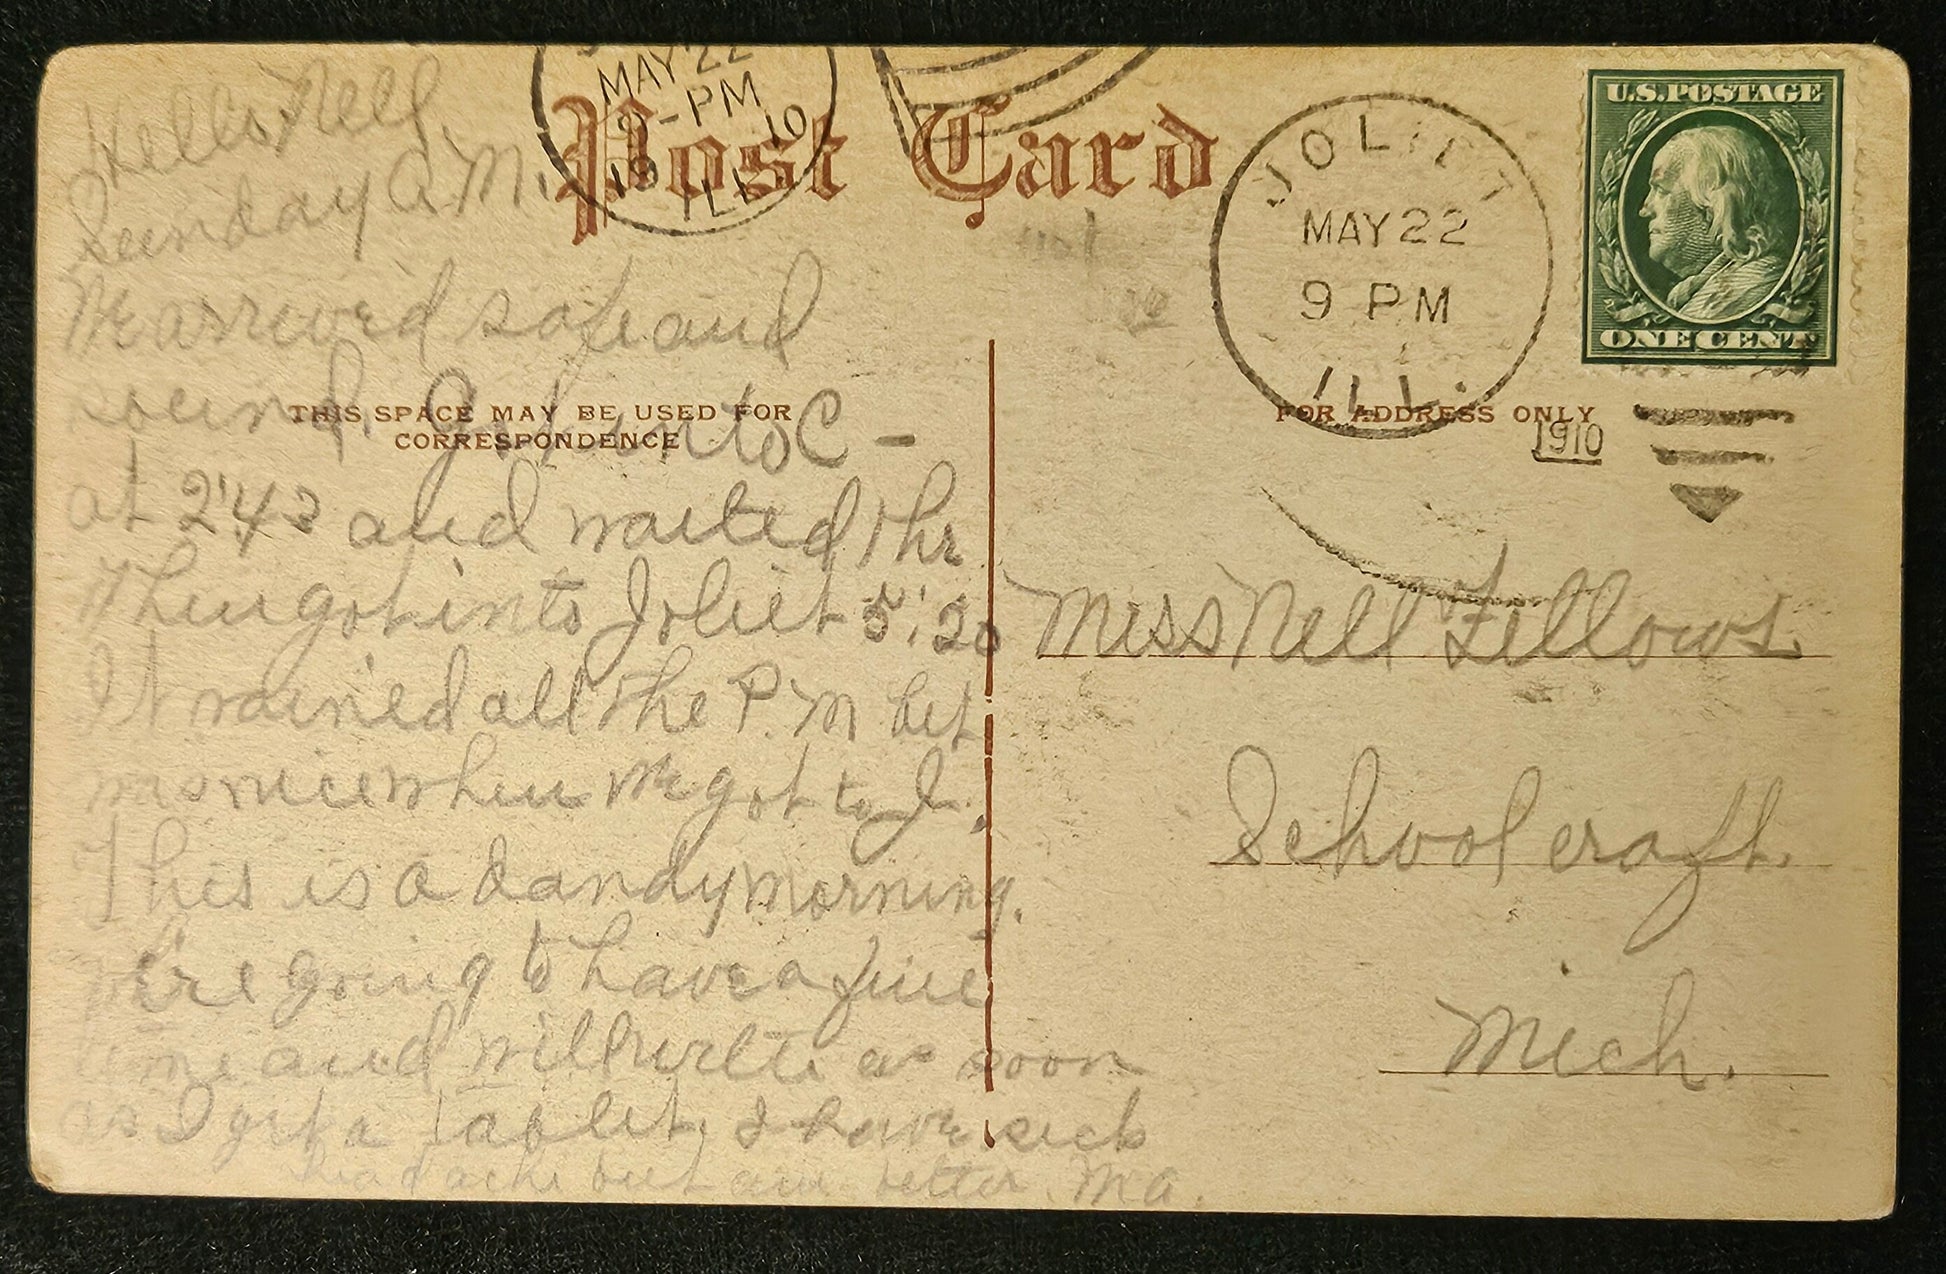 Hello Nell.
Sunday A.M.
We arrived safe and
sound. Got into C -
at 2'43 and waited 1 hr
Then got into Joliet 5:20
It rained all the P.M but
was nice when we got to J.
This is a dandy morning.
We're going to have a fine
time and will write as soon
as I get a tablet. I have sick
headache but am better. Ma.
MAY 22
9-PM
1910
ILL.
Post Card
THIS SPACE MAY BE USED FOR
CORRESPONDENCE
JOLIET
MAY 22
9 PM
ILL.
U.S. POSTAGE
ONE CENT
FOR ADDRESS ONLY
1910
Miss Nell Fellows.
Schoolcraft.
Mich.